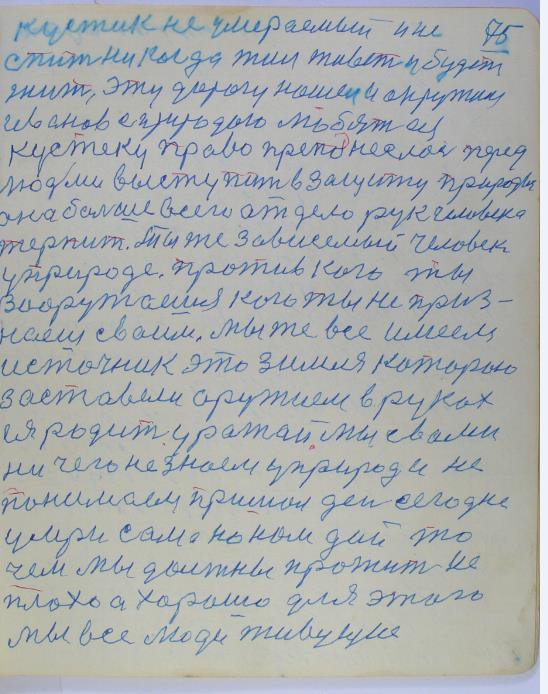 75
кустик не умераемый и не
спит никогда жил живет и будет
жит, эту дорогу нашел и окружил
иванов с природою мобят ея
кустеку право преподнеслос перед
людми выступит в защиту природы
она больше всего от дело рук человека
терпит. Ты же зависемый человек
у природе. против кого ты
вооружаешя кого ты не приз-
наеш своим. мы же все имеем
источник это зимля которою
заставели оружием в руках
ея родит уражай. мы с вами
ни чего не знаем у природе не
понимаем пришол ден сегодне
умри само но нам дай то
чем мы должны прожит не
плохо а хорошо для этого
мы все люди живущие